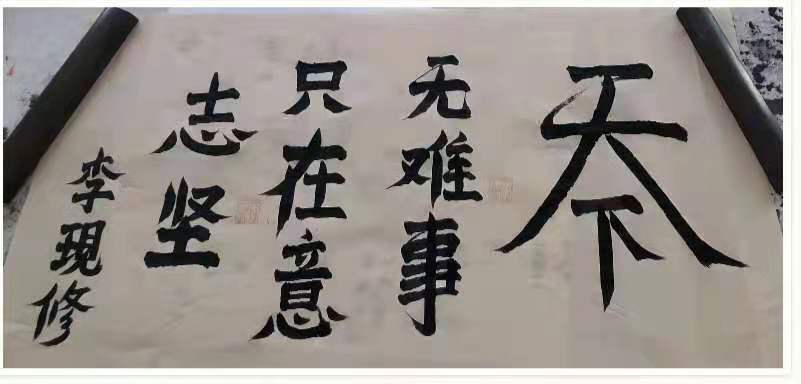 天下
无难事
只在意
志坚
李現修